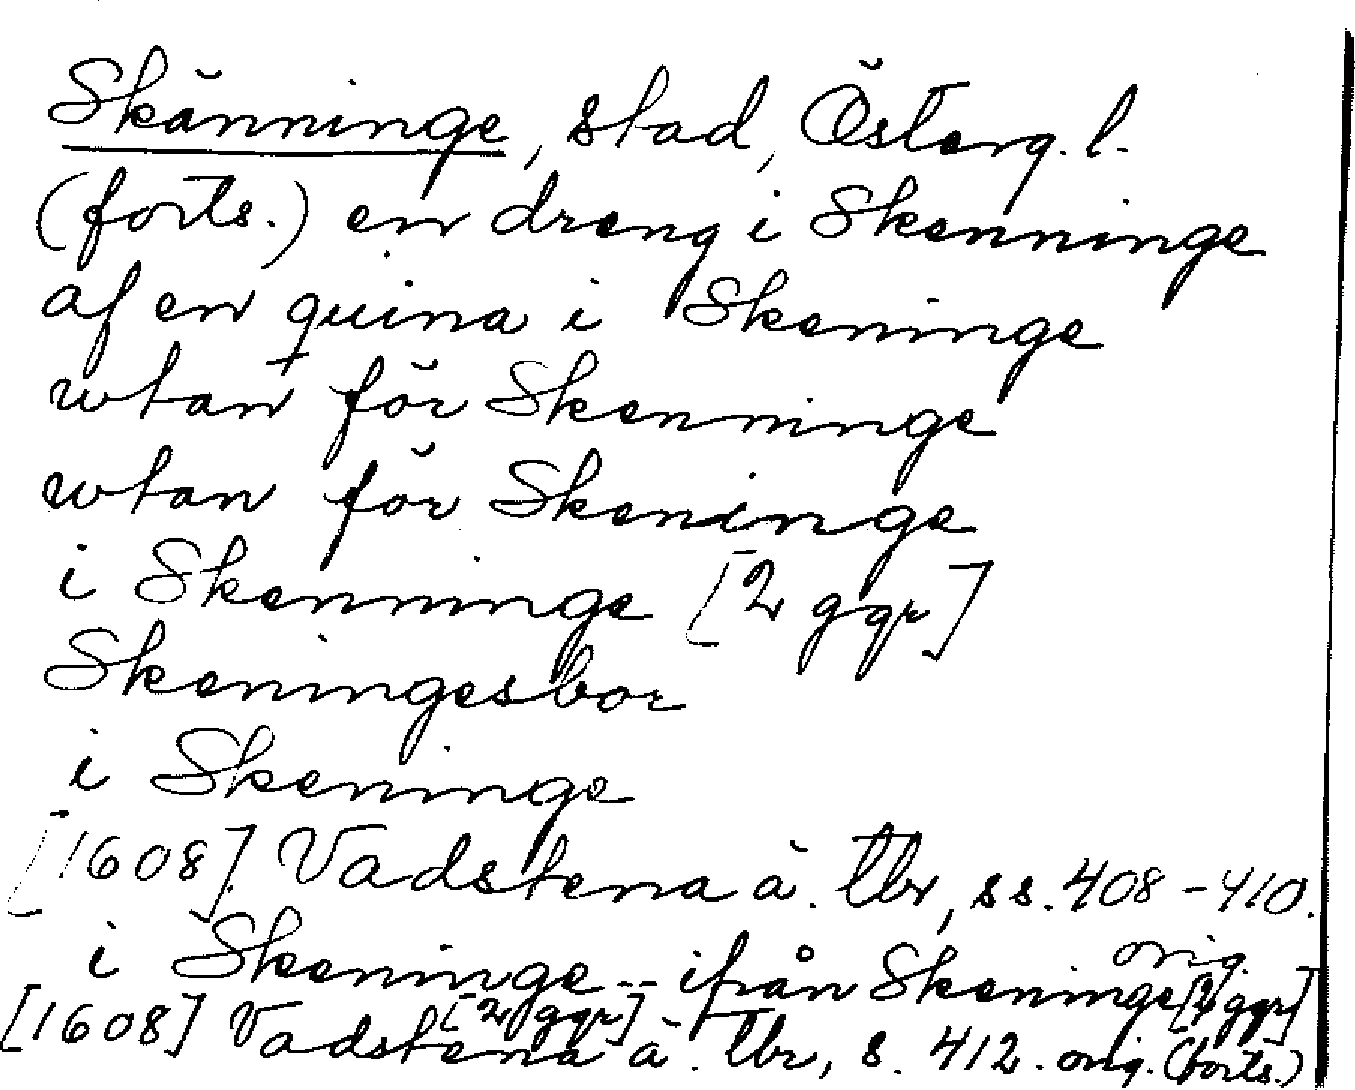 Skänninge, stad, Österg. l.
(forts.) en dreng i Skenninge
af en quina i Skeninge
wtan för Skenninge
wtan för Skeninge
i Skenninge [2 ggr]
Skeningesbor
i Skeninge
[1608] Vadstena ä. tbr, ss. 408-410.
orig.
i Skeninge -- ifrån Skeninge [2 ggr]
[2 ggr]
[1608] Vadstena ä. tbr, s. 412. orig. (forts.)